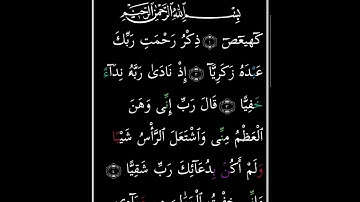 بِسْمِ اللَّهِ الرَّحْمَٰنِ الرَّحِيمِ
كٓهيعٓصٓ ۝١ ذِكْرُ رَحْمَتِ رَبِّكَ
عَبْدَهُ زَكَرِيَّآ ۝٢ إِذْ نَادَىٰ رَبَّهُ نِدَآءً
خَفِيًّا ۝٣ قَالَ رَبِّ إِنِّى وَهَنَ
ٱلْعَظْمُ مِنِّى وَٱشْتَعَلَ ٱلرَّأْسُ شَيْبًا
وَلَمْ أَكُنۢ بِدُعَآئِكَ رَبِّ شَقِيًّا ۝٤
وَإِنِّى خِفْتُ